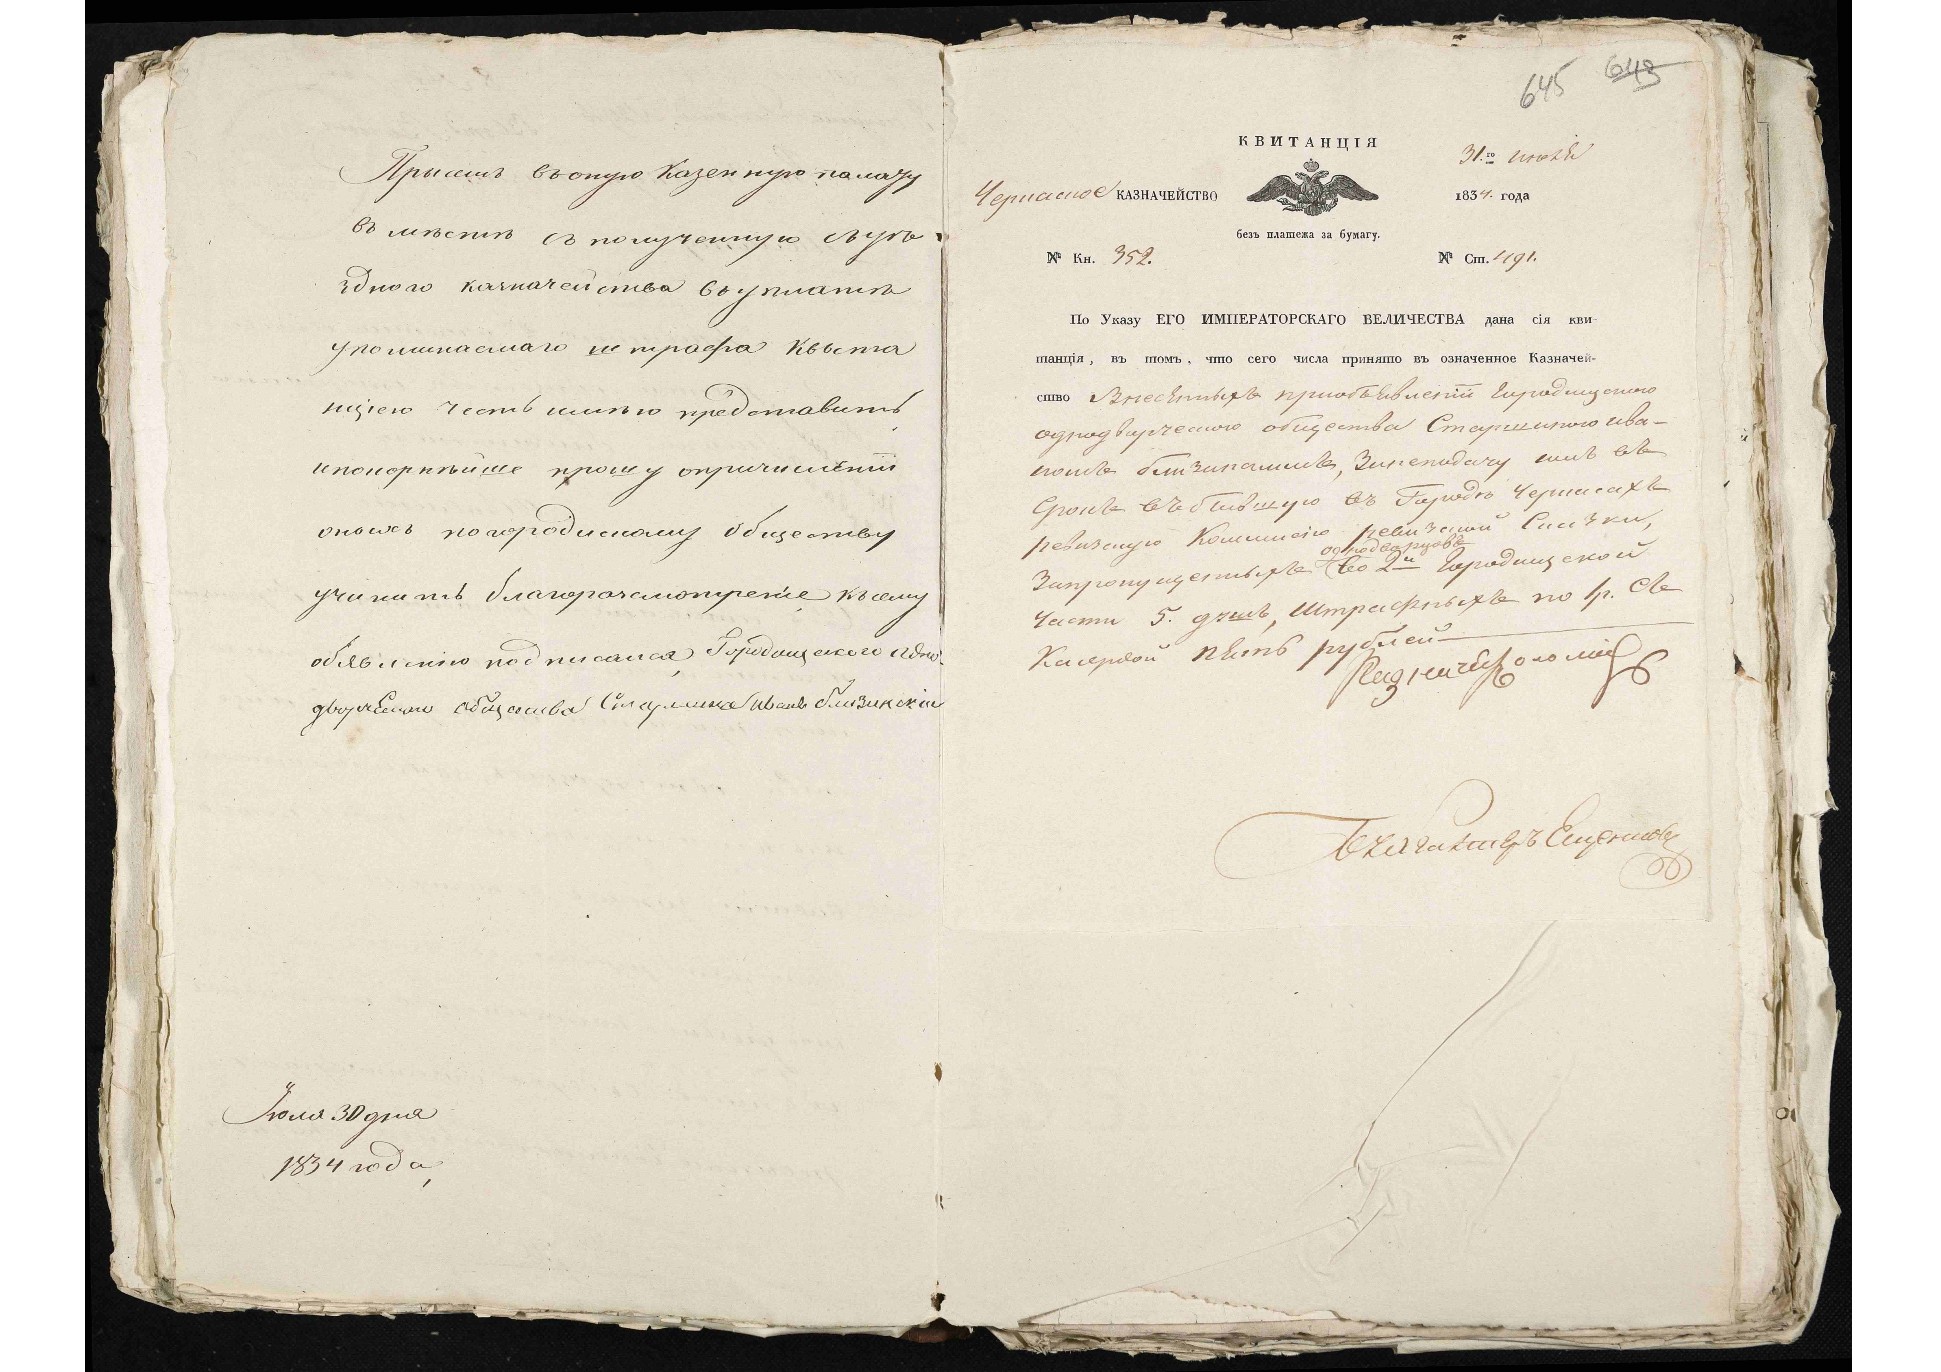 въ оную Казенную палату
въместе съ полученную съ уез
здного казначейства въ уплате
упоминаемаго штрафа Квыта
нцією честь имею представить,
и покорнейше прошу опричисленіи
оныхъ по городискому Обществу
учинить благоразсмотреніе, къ сему
объявленію подписался, Городищского одно-
дворческого общества Старшина Иванъ Близинскій
Іюля 30 дня
1834 года,
645 643
КВИТАНЦІЯ
31.го июля
Черкаское КАЗНАЧЕЙСТВО
1834. года
безъ платежа за бумагу.
№ Кн. 352.
№ Ст. 491.
По Указу ЕГО ИМПЕРАТОРСКАГО ВЕЛИЧЕСТВА дана сія кви-
танція, въ томъ, что сего числа принято въ означенное Казначей-
ство Внесенныхъ приобъявленіи Городищского
однодворческого общества Старшиною Ива-
номъ Близинскимъ, Занеподачу имъ въ
Срокъ въ бывшую въ Городе Черкасахъ
ревизскую Комисію ревизской Сказки,
однодворцовъ
Запропущенныхъ во 2й Городищской
части 5. душъ, Штрафныхъ по 1р. Съ
Каждой пять рублей
Казначей
Бухгалтеръ